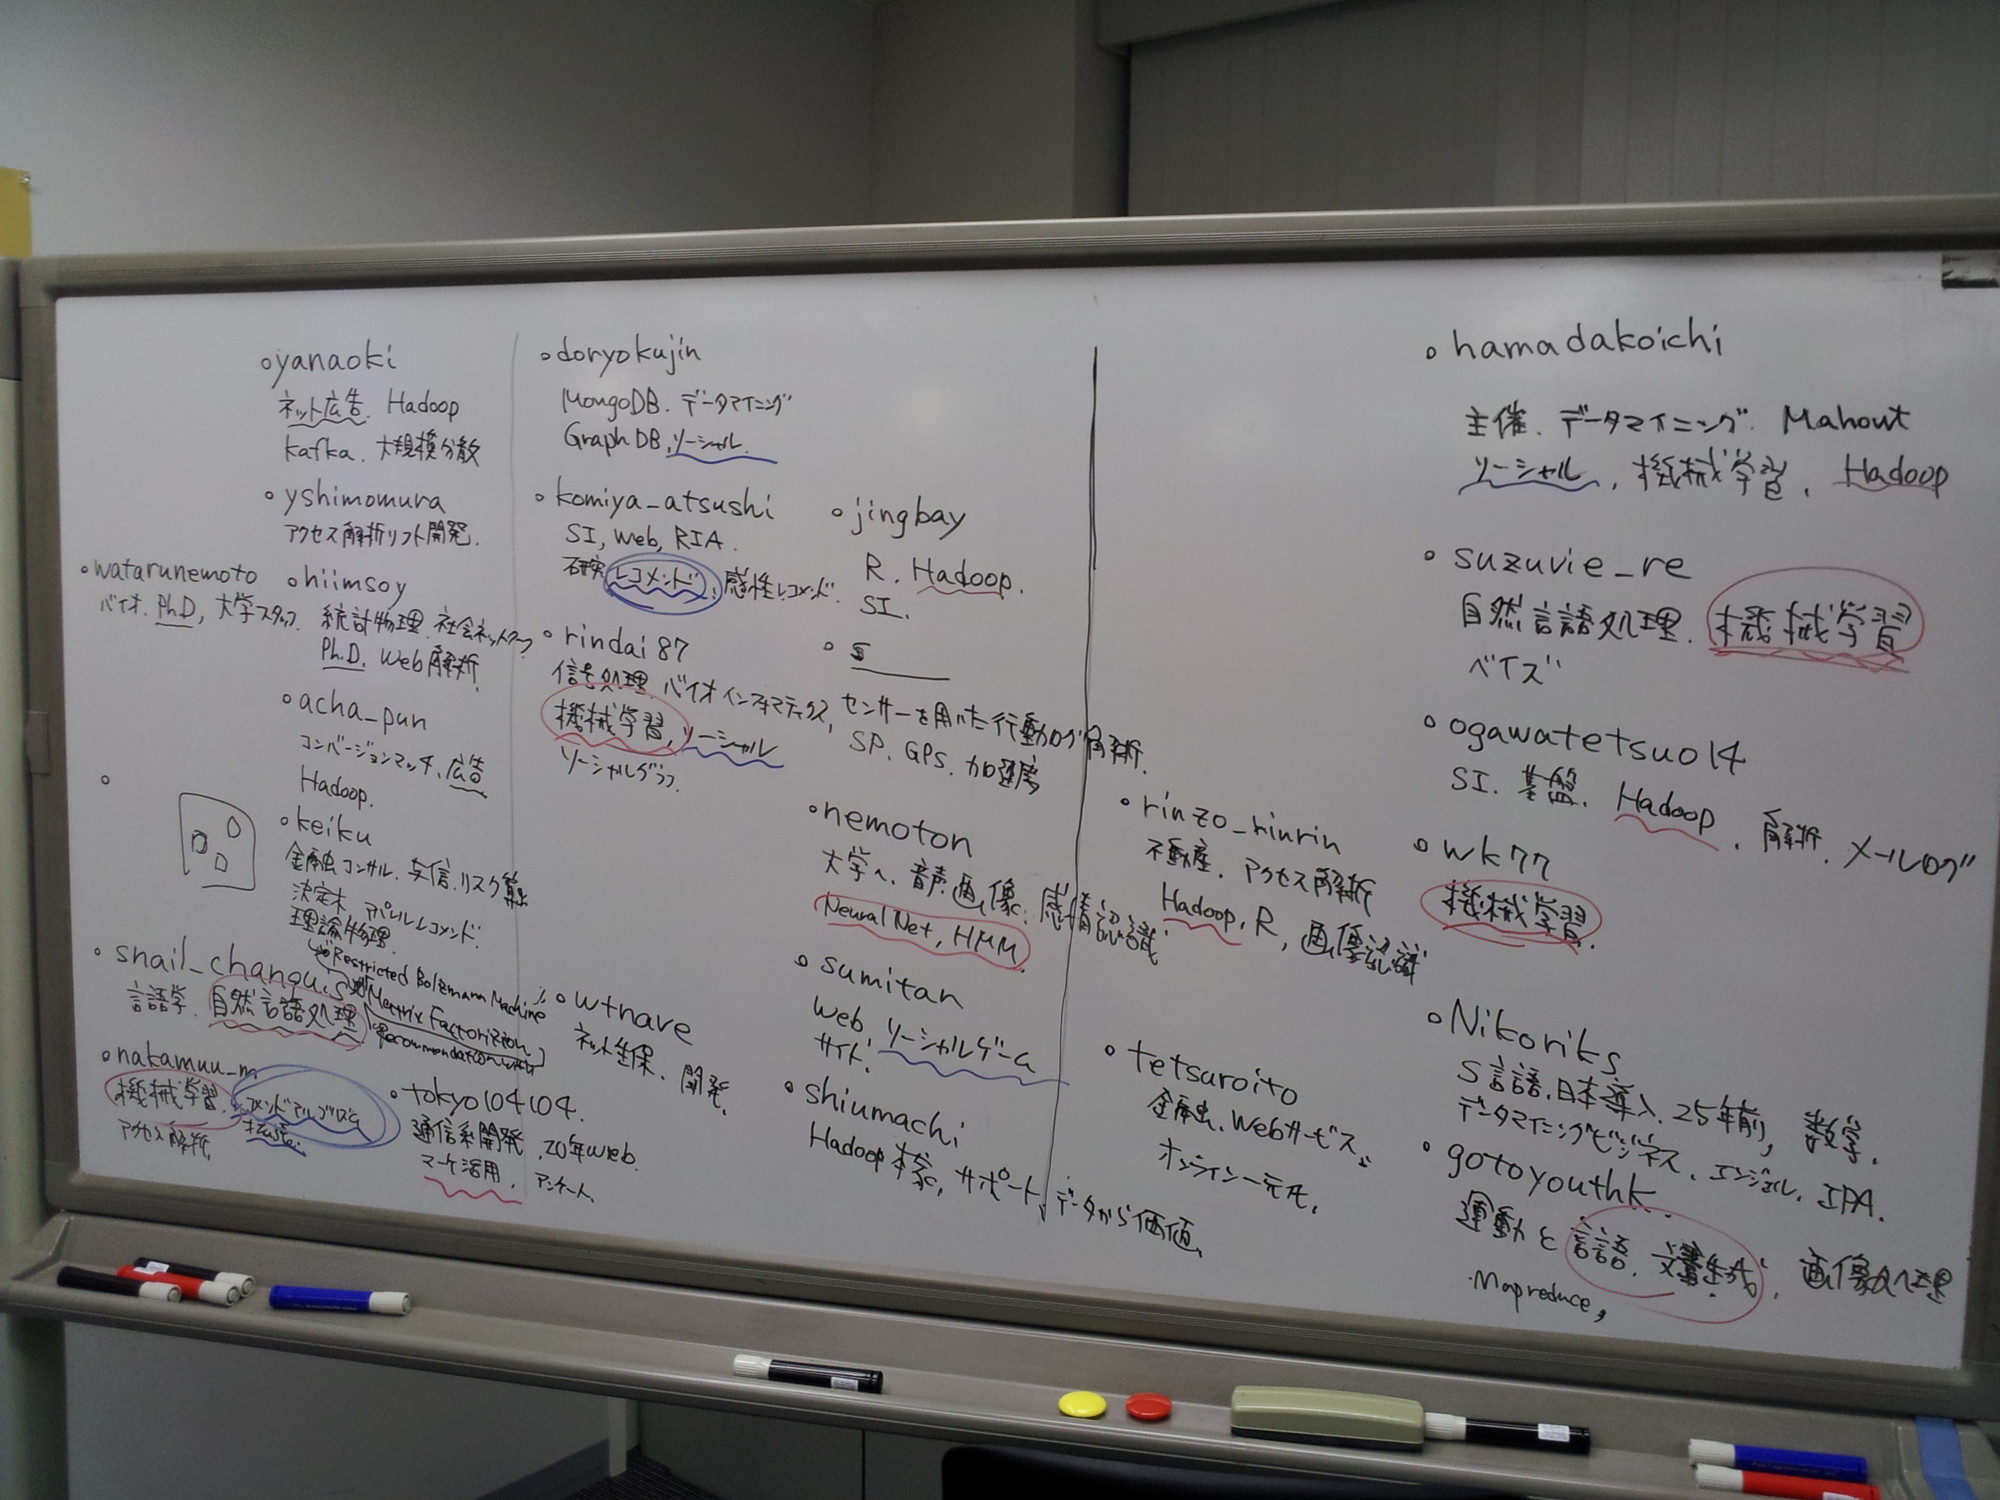 yanaoki
ネット広告. Hadoop
kafka. 大規模分散
yshimomura
アクセス解析ソフト開発.
watarunemoto
バイオ. Ph.D, 大学スタッフ.
hiimsoy
統計物理. 社会ネットワーク
Ph.D. Web解析.
acha_pun
コンバージョンマッチ. 広告
Hadoop.
keiku
金融コンサル. 与信. リスク
決定木 アパレルレコメンド.
理論物理.
Restricted Bolzmann Machine
Factorization
snail_
言語学. 自然言語処理
nakamuu_m
機械学習.
アクセス解析.
tokyo104104.
通信系開発. 20年Web.
マーケ活用. アンケート.
wtnave
ネット生保. 開発.
doryokujin
MongoDB. データマイニング
Graph DB, ソーシャル.
komiya_atsushi
SI, Web, RIA.
研究 レコメンド. 感性レコメンド.
rindai87
信号処理. バイオインフォマティクス,
機械学習, ソーシャル
ソーシャルグラフ.
jingbay
R. Hadoop.
SI.
s
センサーを用いた行動ログ解析.
SP. GPS. 加速度
nemoton
大学へ. 音声. 画像. 感情認識.
Neural Net, HMM.
sumitan
Web ソーシャルゲーム
サイド.
shiumachi
Hadoop本家. サポート. データから価値.
rinzo_rinrin
不動産. アクセス解析
Hadoop, R, 画像認識
tetsuroito
金融. Webサービス.
オンライン一元化.
hamadakoichi
主催. データマイニング. Mahout
ソーシャル, 機械学習. Hadoop
suzuvie_re
自然言語処理. 機械学習
ベイズ
ogawatetsuo14
SI. 基盤. Hadoop. 解析. メールログ
wk77
機械学習.
Nikoriks
S言語. 日本導入. 25年前, 数学.
データマイニングビジネス. エンジェル. IPA.
gotoyouthk.
運動と言語. 文書生成. 画像処理
Mapreduce,